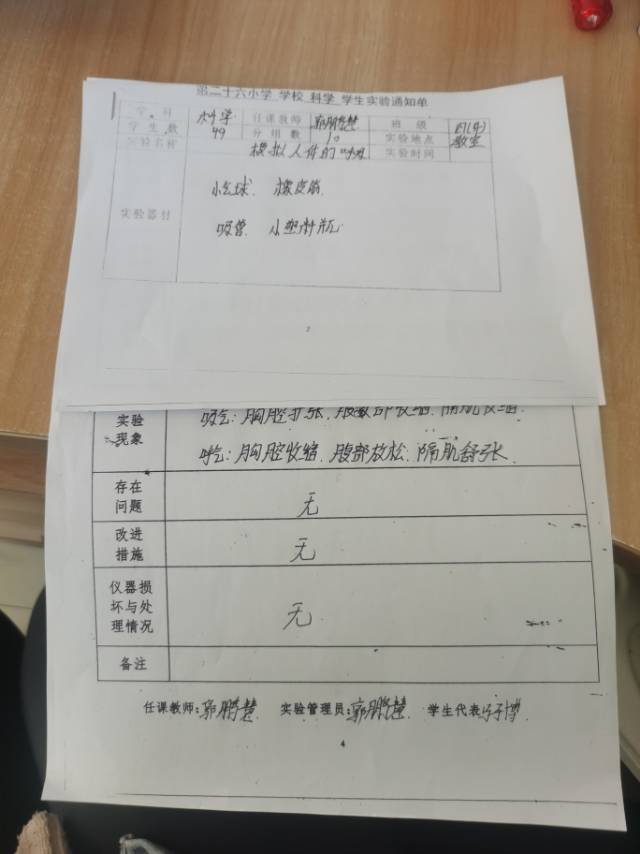 第二十六小学 学校 科学 学生实验通知单
学 科 科学 任课教师 郭鹏慧 班 级 四(4)
学生数 49 分组数 10 实验地点 教室
实验名称 模拟人体的呼吸 实验时间
小气球、橡皮筋
实验器材
吸管、小塑料瓶
2
实验
现象
吸气:胸腔扩张、腹部收缩、隔肌收缩.
呼气:胸腔收缩、腹部放松、隔肌舒张.
存在
问题
无
改进
措施
无
仪器损
坏与处
理情况
无
备注
任课教师:郭鹏慧 实验管理员:郭鹏慧 学生代表
4